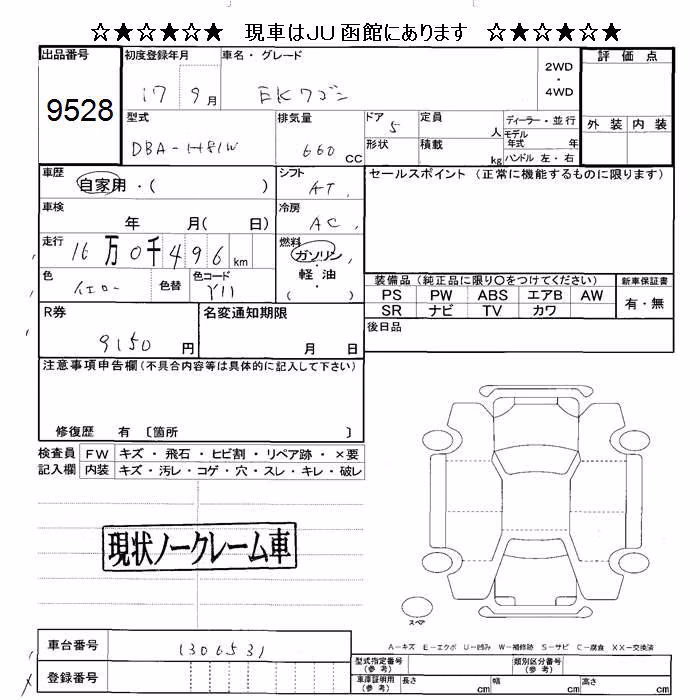 ☆★☆★☆★ 現車はJU函館にあります ☆★☆★☆★
出品番号 初度登録年月 車名・グレード 2WD・4WD 評価点
9528 17 9月 EKワゴン
型式 排気量 ドア 定員 ディーラー・並行 外装 内装
DBA-H81W 660 CC 5 人 モデル年式 年
形状 積載 kg ハンドル 左・右
車歴 自家用・( ) シフト AT セールスポイント (正常に機能するものに限ります)
車検 年 月( 日) 冷房 AC
走行 16万0千496km 燃料 ガソリン・軽油 ( )
色 イエロー 色替 色コード Y11
装備品 (純正品に限り〇をつけてください) 新車保証書
PS PW ABS エアB AW 有・無
SR ナビ TV カワ
R券 9150円 名変通知期限 月 日 後日品
注意事項申告欄 (不具合内容等は具体的に記入して下さい)
修復歴 有 〔箇所 〕
検査員 FW キズ・飛石・ヒビ割・リペア跡・×要
記入欄 内装 キズ・汚レ・コゲ・穴・スレ・キレ・破レ
現状ノークレーム車
スペア
車台番号 1306531
A-キズ E-エクボ U-凹み W-補修跡 S-サビ C-腐食 XX-交換済
登録番号
型式指定番号(参考) 類別区分番号(参考)
車庫証明用(参考) 長さ cm 幅 cm 高さ cm